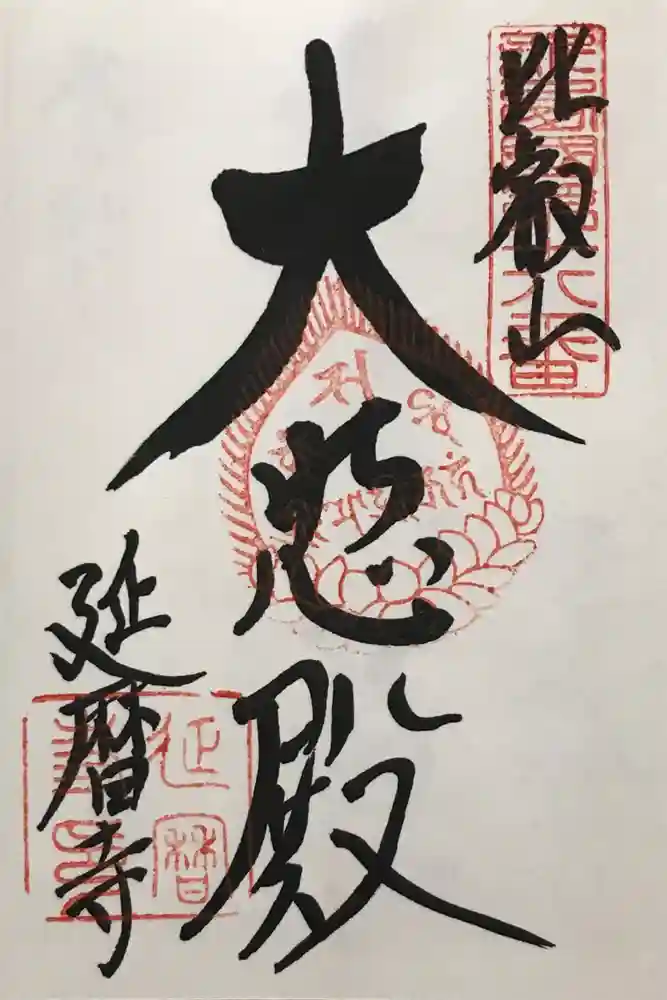 比叡山
大悲殿
延暦寺
延暦
寺印